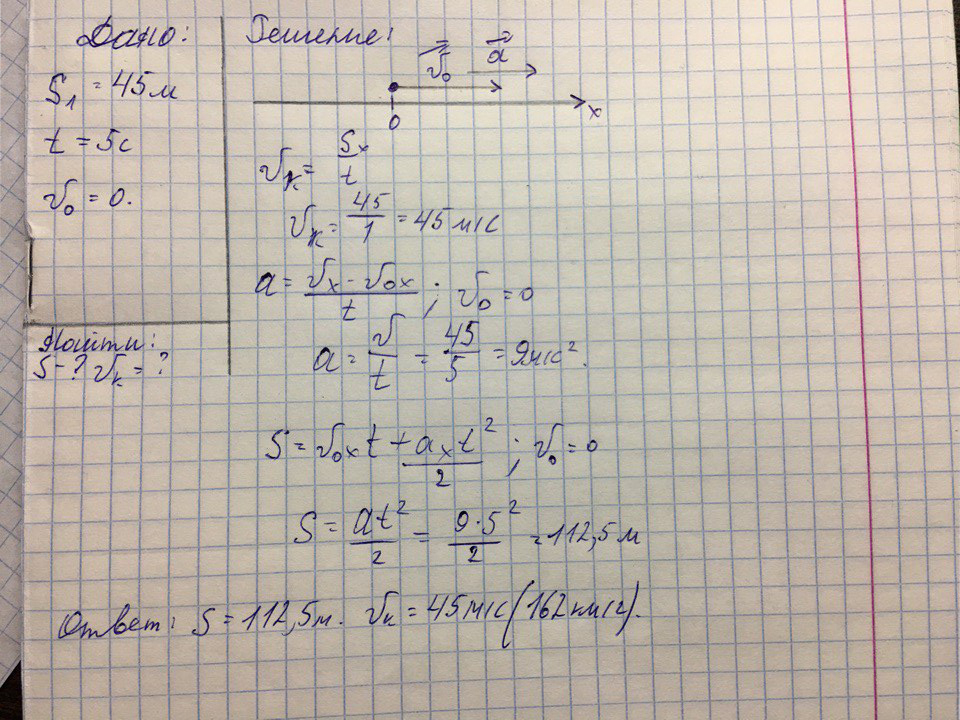 Дано:
S₁ = 45 м
t = 5с
v₀ = 0.
Найти:
S - ? vₖ = ?
Решение:
v₀ a
0 x
vₖ = Sₓ/t
vₖ = 45/1 = 45 м/с
a = (vₓ - v₀ₓ)/t ; v₀ = 0
a = v/t = 45/5 = 9м/с².
S = v₀ₓt + aₓt²/2 ; v₀ = 0
S = at²/2 = 9·5²/2 = 112,5 м
Ответ: S = 112,5м. vₖ = 45м/с (162км/ч).